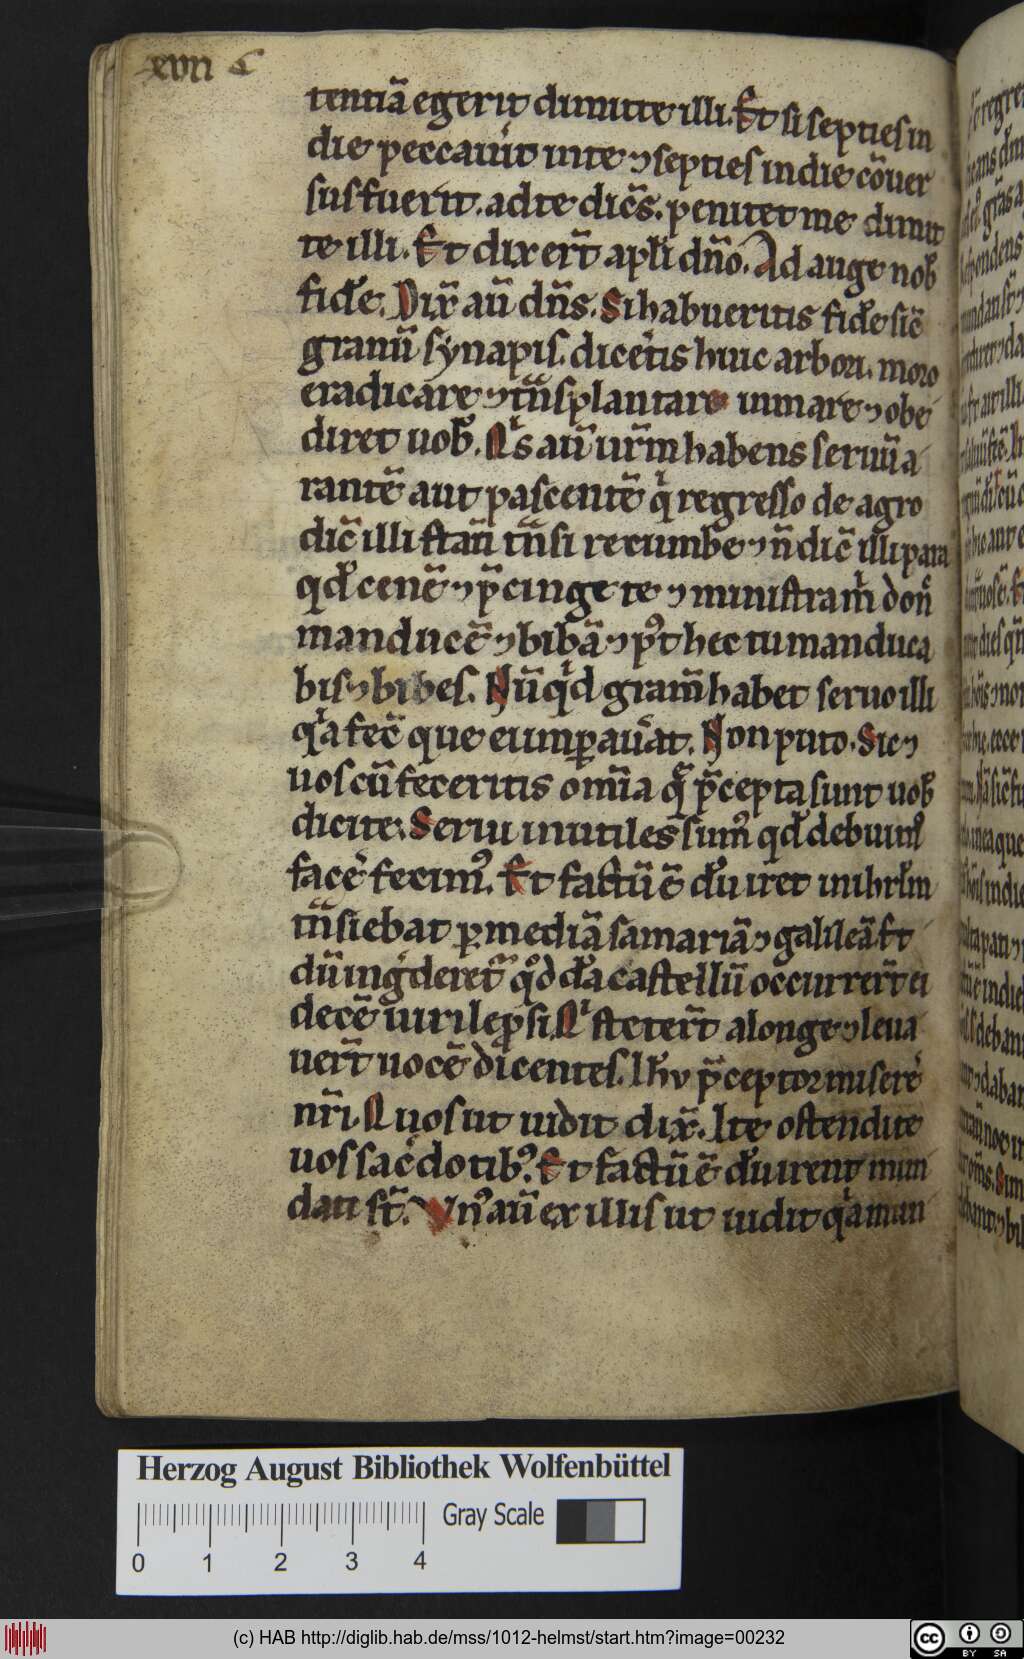 xvii c
tentiā egerit dimitte illi. Et si septies in
die peccauit in te ⁊ septies in die cōuer
sus fuerit. ad te dicēs. penitet me dimit
te illi. Et dixer̄t apl̄i dn̄o. Ad auge nob̄
fidē. Dix̄ aū dn̄s. Si habueritis fidē sic̄
granū synapis. dicetis huic arbori. moro
eradicare ⁊ tn̄splantare in mare ⁊ obe
diret uob̄. Qͥs aū ur̄m habens seruū a
rantē aut pascentē qͥ regresso de agro
dic̄ illi statī tn̄si recumbe ⁊ n̄ dic̄ illi para
qd̄ cenē ⁊ p̄cinge te ⁊ ministra m̄ don̄
manducē ⁊ bibā ⁊ pꝰt hec tu manduca
bis ⁊ bibes. Nū qͥd gram̄ habet seruo illi
qͥa fec̄ que ei imꝑauāt. Non puto. Sic ⁊
uos cū feceritis om̄ia q̄ p̄cepta sunt uob̄
dicite. Serui inutiles sumꝰ qd̄ debuimꝰ
facē fecimꝰ. Et factū ē dū iret in ihrl̄m
tn̄siebat ꝑ mediā samariā ⁊ galileā Et
dū ingderet̄ qͦddā castellū occurrer̄t ei
decē uiri leꝓsi. Qͥ steter̄t a longe ⁊ leua
uer̄t uocē dicentes. Ih̄u p̄ceptor miserē
nr̄i. Quos ut uidit dix̄. Ite ostendite
uos sac̄dotibꝰ. Et factū ē dū irent mun
dati st̄. Vnꝰ aū ex illis ut uidit qͥa mun
Herzog August Bibliothek Wolfenbüttel
Gray Scale
0 1 2 3 4
(c) HAB http://diglib.hab.de/mss/1012-helmst/start.htm?image=00232
cc BY SA